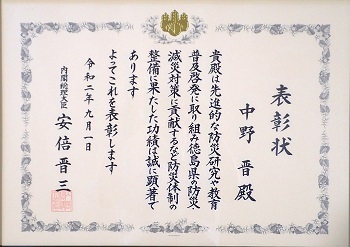 表彰状
中野 晋 殿
貴殿は先進的な防災研究や教育
普及啓発に取り組み徳島県の防災
減災対策に貢献するなど防災体制の
整備に果たした功績は誠に顕著で
あります
よってこれを表彰します
令和二年九月一日
内閣総理大臣 安倍晋三